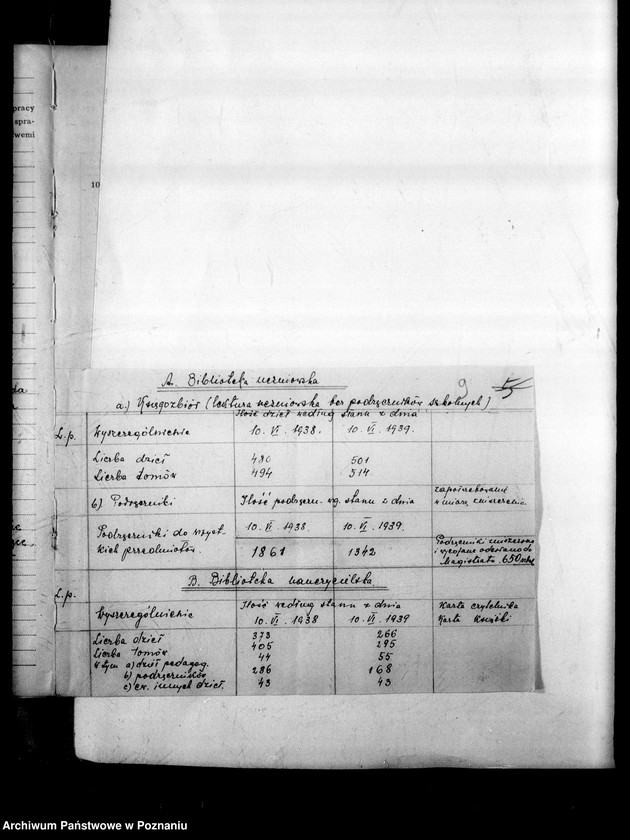 pracy
spra-
wemi
10
A. Biblioteka uczniowska
9
a.) Księgozbiór (lektura uczniowska bez podręczników szkolnych)
Ilość dzieł według stanu z dnia
L.p. Wyszczególnienie 10. VI. 1938. 10. VI. 1939.
Liczba dzieł 480 501
Liczba tomów 494 514
b) Podręczniki Ilość podręczn. wg. stanu z dnia
w miarę zniszczenia
Podręczniki do wszyst- 10. VI. 1938. 10. VI. 1939.
kich przedmiotów. 1861 1342
Podręczniki zniszczone
i wycofane odesłano do
Magistratu 650
B. Biblioteka nauczycielska
L.p. Ilość według stanu z dnia Karta czytelnika
Wyszczególnienie 10. VI. 1938 10. VI. 1939 Karta książki
Liczba dzieł 373 266
Liczba tomów 405 295
w tym a) dzieł pedagog. 44 55
b) podręczników 286 168
c) innych dzieł. 43 43
Archiwum Państwowe w Poznaniu